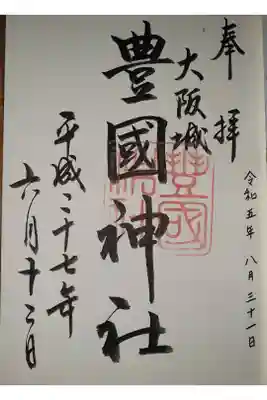 奉拝
令和五年 八月三十一日
大阪城
豊國神社
平成二十七年
六月十二日